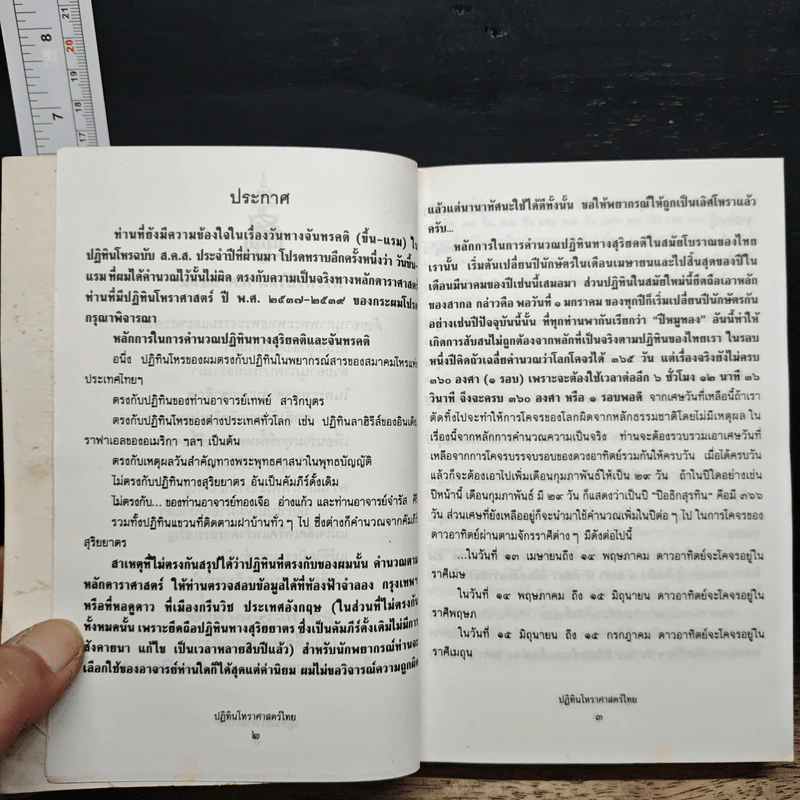 8
20
19
18
7
17
ประกาศ
ท่านที่ยังมีความข้องใจในเรื่องวันทางจันทรคติ (ขึ้น-แรม) ใน
ปฏิทินโหรฉบับ ส.ค.ส. ประจำปีที่ผ่านมา โปรดทราบอีกครั้งหนึ่งว่า วันขึ้น-
แรม ที่ผมได้คำนวณไว้นั้นไม่ผิด ตรงกับความเป็นจริงทางหลักดาราศาสตร์
ท่านที่มีปฏิทินโหราศาสตร์ ปี พ.ศ. ๒๕๓๗-๒๕๓๙ ของกระผมโปรด
กรุณาพิจารณา
หลักการในการคำนวณปฏิทินทางสุริยคติและจันทรคติ
อนึ่ง ปฏิทินโหรของผมตรงกับปฏิทินในพยากรณ์สารของสมาคมโหรแห่ง
ประเทศไทยๆ
ตรงกับปฏิทินของท่านอาจารย์เทพย์ สาริกบุตร
ตรงกับปฏิทินโหรของต่างประเทศทั่วโลก เช่น ปฏิทินลาฮิรีส์ของอินเดีย
ราฟาเอลของอเมริกา ฯลฯ เป็นต้น
ตรงกับเหตุผลวันสำคัญทางพระพุทธศาสนาในพุทธบัญญัติ
ไม่ตรงกับปฏิทินทางสุริยยาตร อันเป็นคัมภีร์ดั้งเดิม
ไม่ตรงกับ... ของท่านอาจารย์ทองเจือ อ่างแก้ว และท่านอาจารย์จำรัส
รวมทั้งปฏิทินแขวนที่ติดตามฝาบ้านทั่ว ๆ ไป ซึ่งต่างก็คำนวณจากคัมภีร์
สุริยยาตร
สาเหตุที่ไม่ตรงกันสรุปได้ว่าปฏิทินที่ตรงกับของผมนั้น คำนวณตาม
หลักดาราศาสตร์ ให้ท่านตรวจสอบข้อมูลได้ที่ท้องฟ้าจำลอง กรุงเทพฯ
หรือที่หอดูดาว ที่เมืองกรีนวิช ประเทศอังกฤษ (ในส่วนที่ไม่ตรงกัน
ทั้งหมดนั้น เพราะยึดถือปฏิทินทางสุริยยาตร ซึ่งเป็นคัมภีร์ดั้งเดิมไม่มีการ
สังคายนา แก้ไข เป็นเวลาหลายสิบปีแล้ว) สำหรับนักพยากรณ์ท่านจะ
เลือกใช้ของอาจารย์ท่านใดก็ได้สุดแต่ค่านิยม ผมไม่ขอวิจารณ์ความถูกผิด
ปฏิทินโหราศาสตร์ไทย
๒
แล้วแต่นานาทัศนะใช้ได้ดีทั้งนั้น ขอให้พยากรณ์ให้ถูกเป็นเลิศโหราแล้ว
ครับ...
หลักการในการคำนวณปฏิทินทางสุริยคติในสมัยโบราณของไทย
เรานั้น เริ่มต้นเปลี่ยนปีนักษัตรในเดือนเมษายนและไปสิ้นสุดของปีใน
เดือนมีนาคมของปีเช่นนี้เสมอมา ส่วนปฏิทินในสมัยใหม่นี้ยึดถือเอาหลัก
ของสากล กล่าวคือ พอวันที่ ๑ มกราคม ของทุกปีก็เริ่มเปลี่ยนปีนักษัตรกัน
อย่างเช่นปีปัจจุบันนี้นั้น ที่ทุกท่านพากันเรียกว่า "ปีหมูทอง" อันนี้ทำให้
เกิดการสับสนไม่ถูกต้องจากหลักที่เป็นจริงตามปฏิทินของไทยเรา ในรอบ
หนึ่งปีคิดตัวเฉลี่ยคำนวณว่าโลกโคจรได้ ๓๖๕ วัน แต่เรื่องจริงยังไม่ครบ
๓๖๐ องศา (๑ รอบ) เพราะจะต้องใช้เวลาต่ออีก ๖ ชั่วโมง ๑๒ นาที ๓๖
วินาที จึงจะครบ ๓๖๐ องศา หรือ ๑ รอบพอดี จากเศษวันที่เหลือนี้ถ้าเรา
ตัดทิ้งไปจะทำให้การโคจรของโลกผิดจากหลักธรรมชาติโดยไม่มีเหตุผล ใน
เรื่องนี้จากหลักการคำนวณความเป็นจริง ท่านจะต้องรวบรวมเอาเศษวันที่
เหลือจากการโคจรบรรจบรอบของดวงอาทิตย์รวมกันให้ครบวัน เมื่อได้ครบวัน
แล้วก็จะต้องเอาไปเพิ่มเดือนกุมภาพันธ์ให้เป็น ๒๙ วัน ถ้าในปีใดอย่างเช่น
ปีหน้านี้ เดือนกุมภาพันธ์ มี ๒๙ วัน ก็แสดงว่าเป็นปี "ปีอธิกสุรทิน" คือมี ๓๖๖
วัน ส่วนเศษที่ยังเหลืออยู่ก็จะนำมาใช้คำนวณเพิ่มในปีต่อ ๆ ไป ในการโคจรของ
ดาวอาทิตย์ผ่านตามจักรราศีต่าง ๆ มีดังต่อไปนี้
...ในวันที่ ๑๓ เมษายนถึง ๑๔ พฤษภาคม ดาวอาทิตย์จะโคจรอยู่ใน
ราศีเมษ
ในวันที่ ๑๔ พฤษภาคม ถึง ๑๕ มิถุนายน ดาวอาทิตย์จะโคจรอยู่ใน
ราศีพฤษภ
ในวันที่ ๑๕ มิถุนายน ถึง ๑๕ กรกฎาคม ดาวอาทิตย์จะโคจรอยู่ใน
ราศีเมถุน
ปฏิทินโหราศาสตร์ไทย
๓